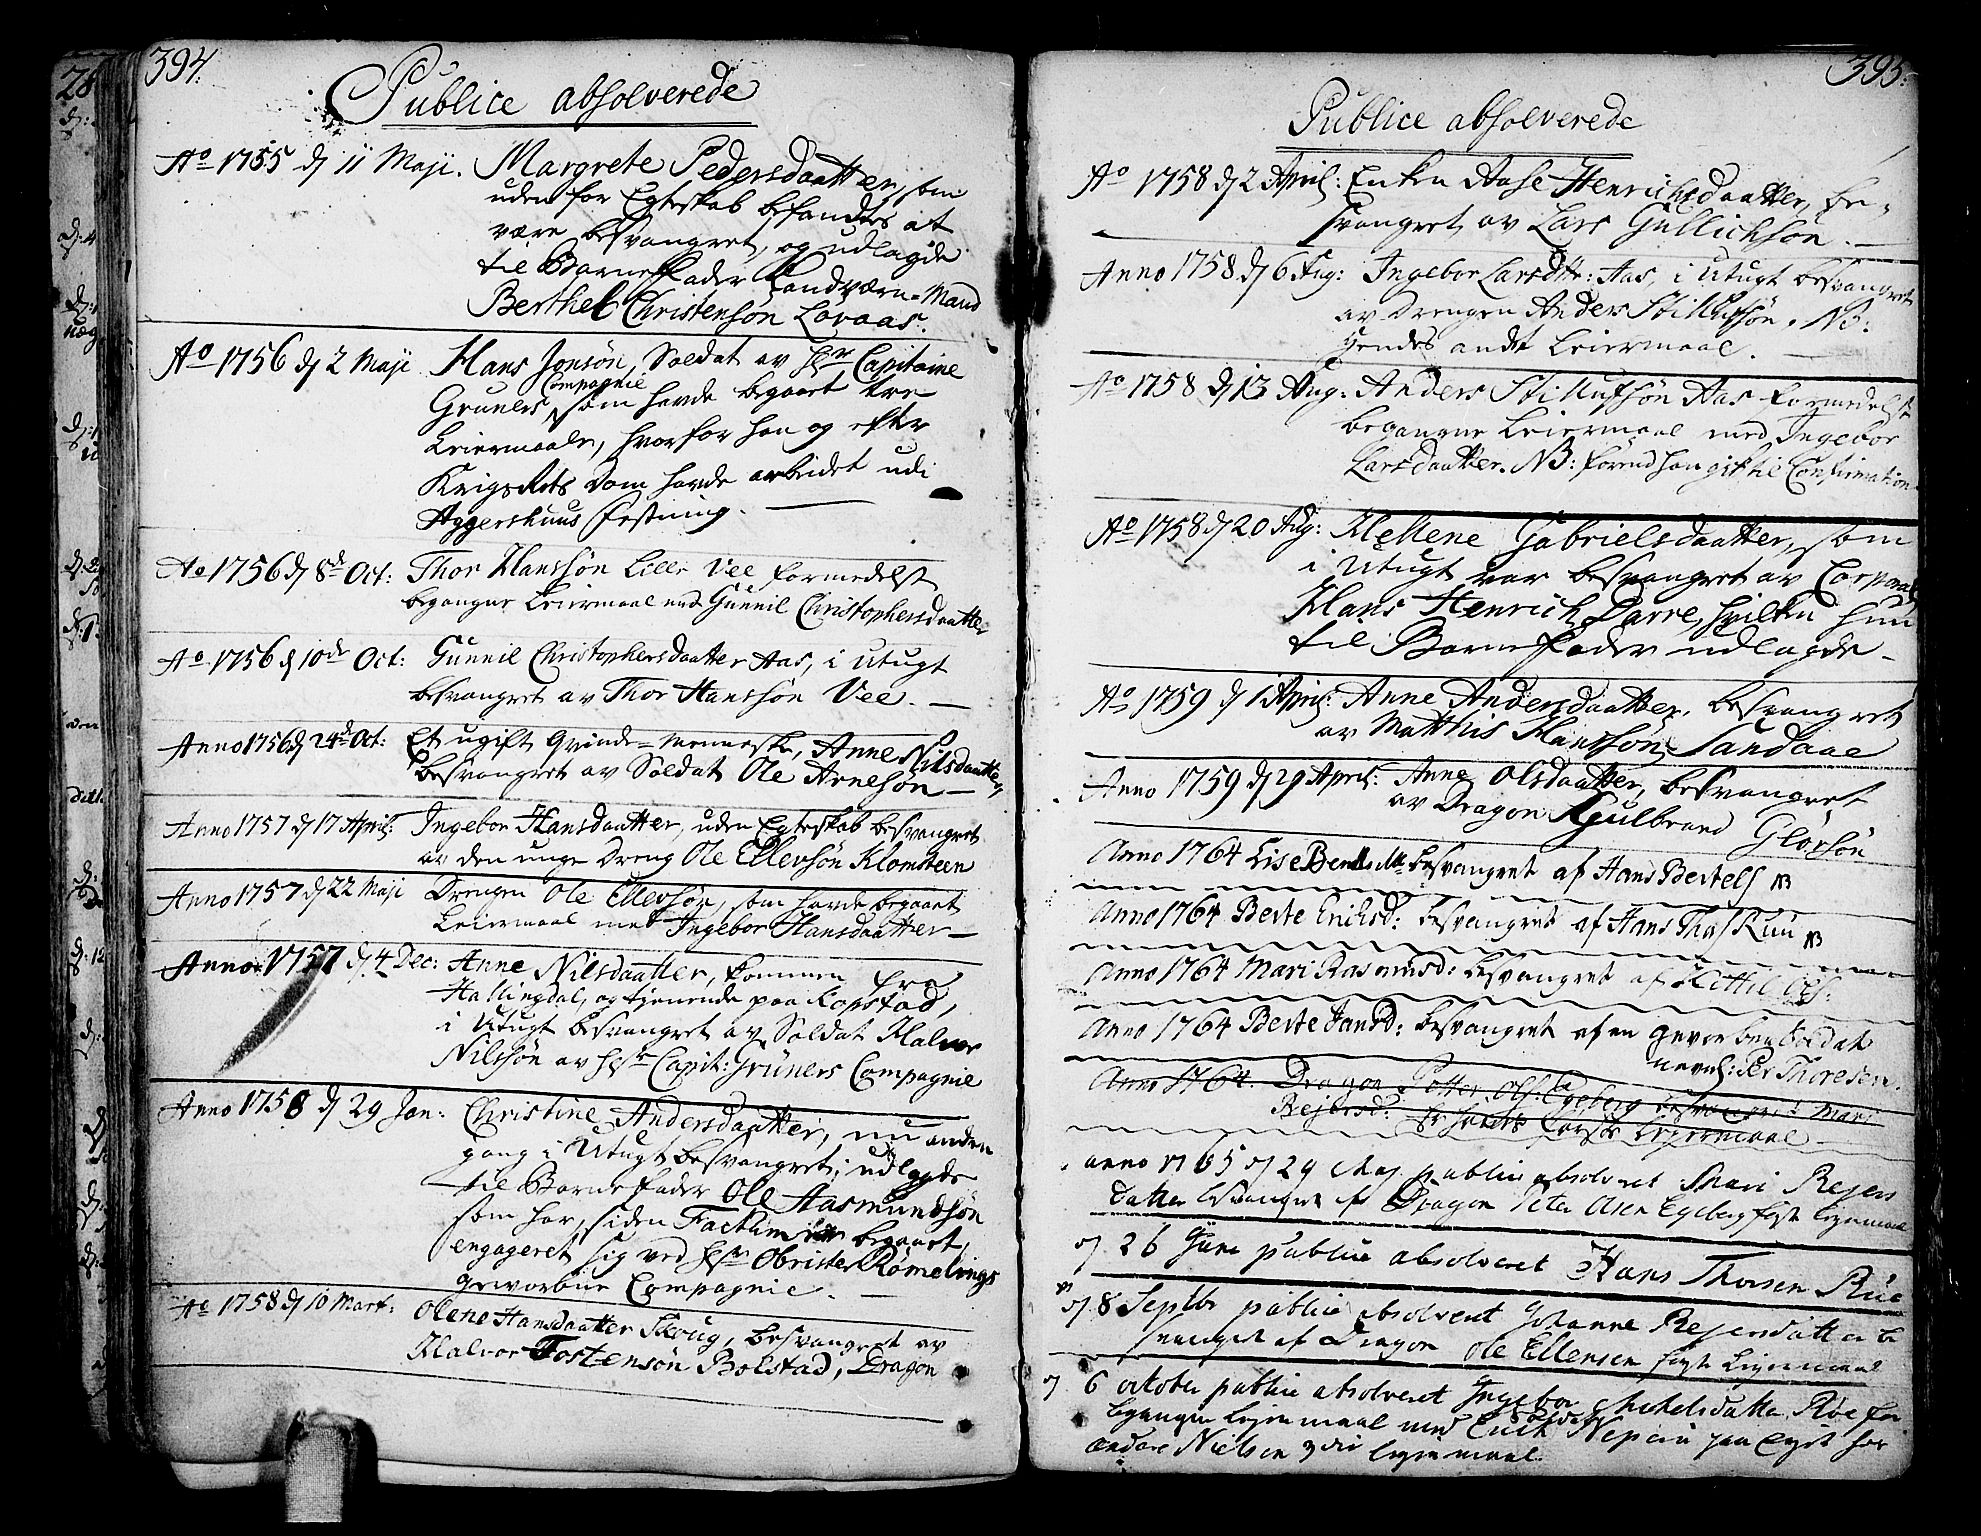 394.
Publice absolverede
Ao 1755 d 11 Maji. Margrete Pedersdaatter, som
uden for Egteskab befandtes at
være besvangret, og udlagde
til Barnefader Landværn-Mand
Berthel Christensøn Lovaas.
Ao 1756 d 2 Maji Hans Jonsøn, Soldat av Hr Capitaine
Gruners Compagnie, som havde begaaet tre
Leiermaale, hvorfor han og efter
KrigsRets Dom havde arbeidet udi
Aggershuus Festning.
Ao 1756 d 8d Oct: Thor Hanssøn Lille Vee formedelst
begangne Leiermaal med Gunnil Christophersdaatter
Ao 1756 d 10de Oct: Gunnil Christophersdaatter Aas, i Utugt
besvangret av Thor Hanssøn Vee.
Anno 1756 d 24d Oct: Et ugift Qvinde-Menneske, Anne Nilsdaatter,
besvangret av Soldat Ole Arnesøn
Anno 1757 d 17 April: Ingebor Hansdaatter, uden Egteskab besvangret
av den unge Dreng Ole Ellevsøn Klomsteen
Anno 1757 d 22 Maji Drengen Ole Ellevsøn, som havde begaaet
Leiermaal med Ingebor Hansdaatter
Anno 1757 d 4 Dec: Anne Nilsdaatter, kommen fra
Hallingdal, og tjenende paa Kopstad,
i Utugt besvangret av Soldat Halvor
Nilssøn av Hr Capit: Grüners Compagnie
Anno 1758 d 29 Jan: Christine Andersdaatter, nu anden
gang i Utugt besvangret; udlagde
til Barnefader Ole Aasmundsøn
som har, siden Factum begaaet,
engageret sig ved Hr Obrister Rømelings
Geworbne Compagnie.
Ao 1758 d 10 Mart: Olene Hansdaatter Skoug, besvangret av
Halvor Tostensøn Bolstad, Dragon
395.
Publice absolverede
Ao 1758 d 2 April: Enken Aase Henrichsdaatter, be-
svangret av Lars Gullichsøn.
Anno 1758 d 6 Aug: Ingebor Larsdtr: Aas, i Utugt besvangret
av Drengen Anders Stillufsøn. NB:
hendes andet Leiermaal.
Ao 1758 d 13 Aug: Anders Stillufsøn Aas formedelst
begangne Leiermaal med Ingebor
Larsdaatter. NB: forend han gik til Confirmation
Ao 1758 d 20 Aug: Mellene Gabrielsdaatter, som
i Utugt var besvangret av Corporal
Hans Henrich Darre, hvilken hun
til Barnefader udlagde
Ao 1759 d 1 April: Anne Andersdaatter, besvangret
av Matthis Hanssøn Sandaae
Anno 1759 d 29 April: Anne Olsdaatter, besvangret
av Dragon Gulbrand Glorsøn
Anno 1764 Lise besvangret af Hans Bertels NB
Anno 1764 Berte Ericksd: besvangret af Hans Thos Ruu NB
Anno 1764 Mari Rasmusd: besvangret af Kittil Ols:
Anno 1764 Berte Jansd: besvangret af en Gevorben Soldat
navnl: Per Thoresen.
Anno 1764. Dragon Petter Ols: Egeberg besvangret Mari
Rejersd: Leyermaal
anno 1765 d 29 Maj publice absolveret Mari Rejers
datter besvangret af Dragon Peter Olsen Egeberg Leyermaal
d 26 Juni publice absolveret Hans Thorsen Rue
d 8 Septbr publice absolveret Johanne Rejersdatter be
svanget af Dragon Ole Ellensen Leyermaal
d 6 october publice absolveret Ingebor Mickelsdatter Roe for
begangen Lejermaal med
Nielsen Lejermaal